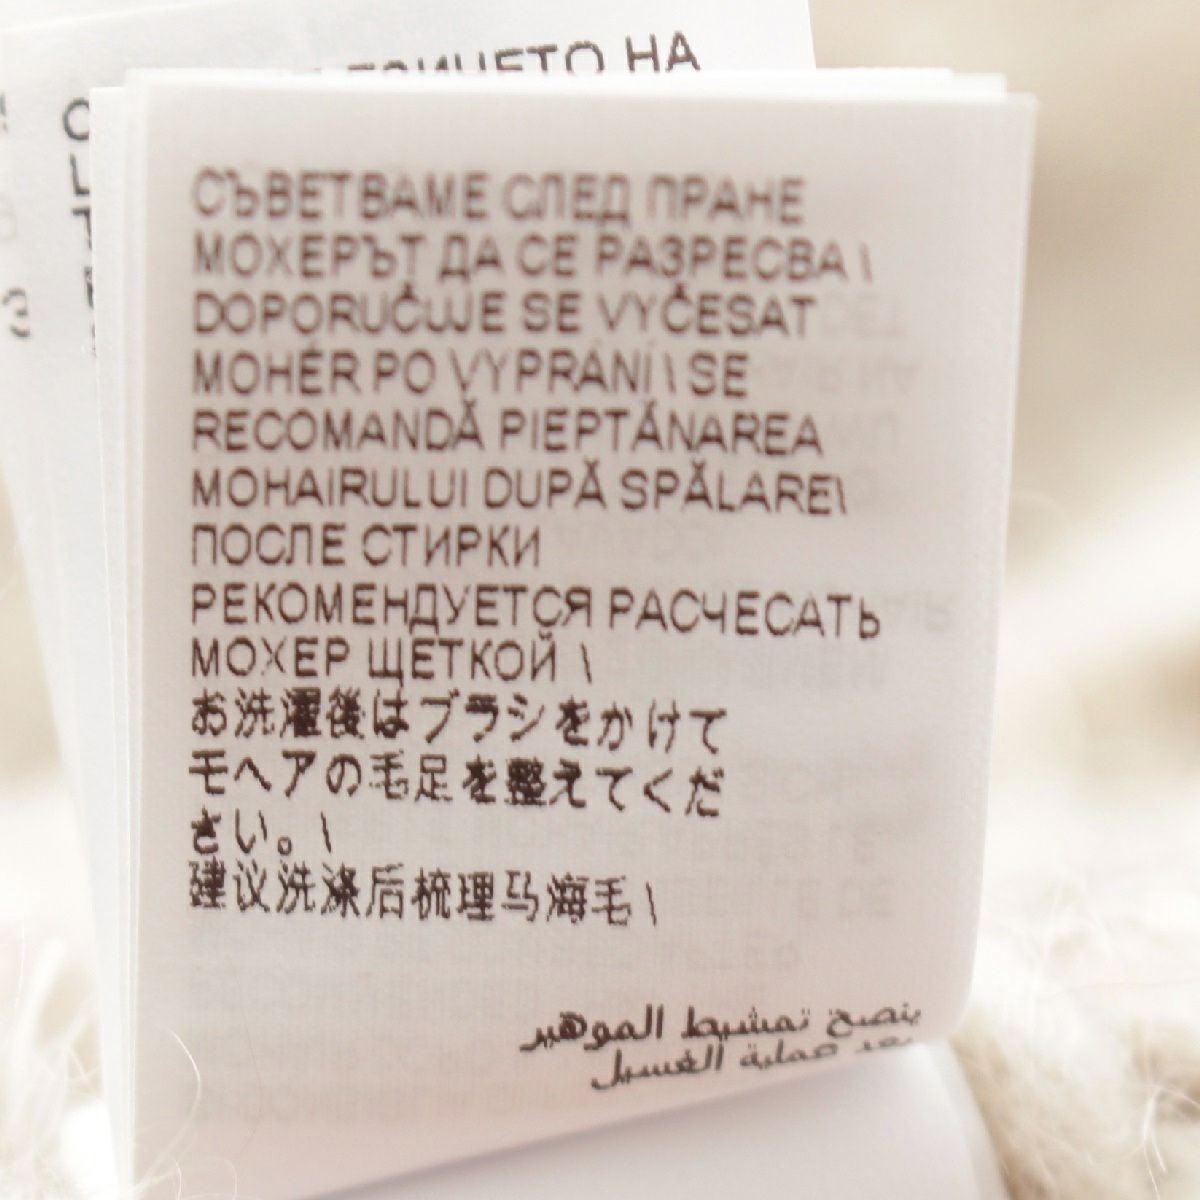 СЪВЕТВАМЕ СЛЕД ПРАНЕ
МОХЕРЪТ ДА СЕ РАЗРЕСВА \
DOPORUČUJE SE VYČESAT
MOHÉR PO VYPRÁNÍ \ SE
RECOMANDĂ PIEPTĂNAREA
MOHAIRULUI DUPĂ SPĂLARE\
ПОСЛЕ СТИРКИ
РЕКОМЕНДУЕТСЯ РАСЧЕСАТЬ
МОХЕР ЩЕТКОЙ \
お洗濯後はブラシをかけて
モヘアの毛足を整えてくだ
さい。\
建议洗涤后梳理马海毛 \
ينصح تمشيط الموهير
بعد عملية الغسيل